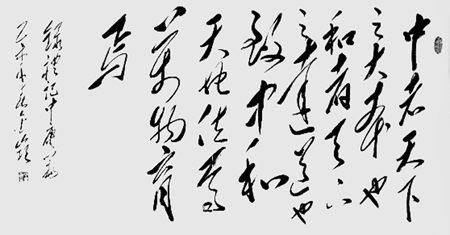 中者天下
之大本也
和者天下
之達道也
致中和
天地位焉
萬物育
焉
錄禮記中庸